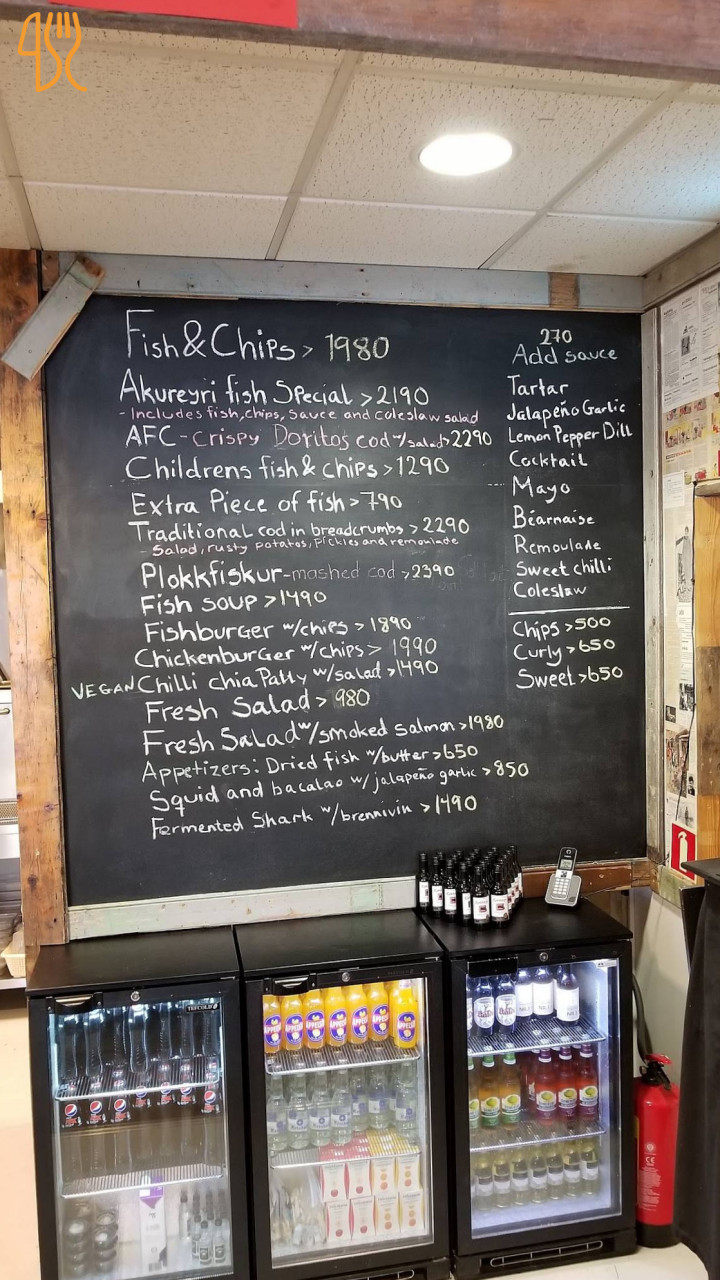 Fish & Chips > 1980
Akureyri fish Special > 2190
- Includes fish, chips, sauce and coleslaw salad
AFC - Crispy Doritos cod w/salad > 2290
Childrens fish & chips > 1290
Extra Piece of fish > 790
Traditional cod in breadcrumbs > 2290
- Salad, rusty potatos, pickles and remoulade
Plokkfiskur - mashed cod > 2390
Fish soup > 1490
Fishburger w/chips > 1890
Chickenburger w/chips > 1990
VEGAN Chilli chia Patty w/salad > 1490
Fresh Salad > 980
Fresh Salad w/smoked Salmon > 1980
Appetizers: Dried fish w/butter > 650
Squid and bacalao w/jalapeño garlic > 850
Fermented Shark w/brennivin > 1490
270
Add sauce
Tartar
Jalapeño Garlic
Lemon Pepper Dill
Cocktail
Mayo
Béarnaise
Remoulade
Sweet chilli
Coleslaw
Chips > 500
Curly > 650
Sweet > 650
TEFCOLD
APPELSÍN